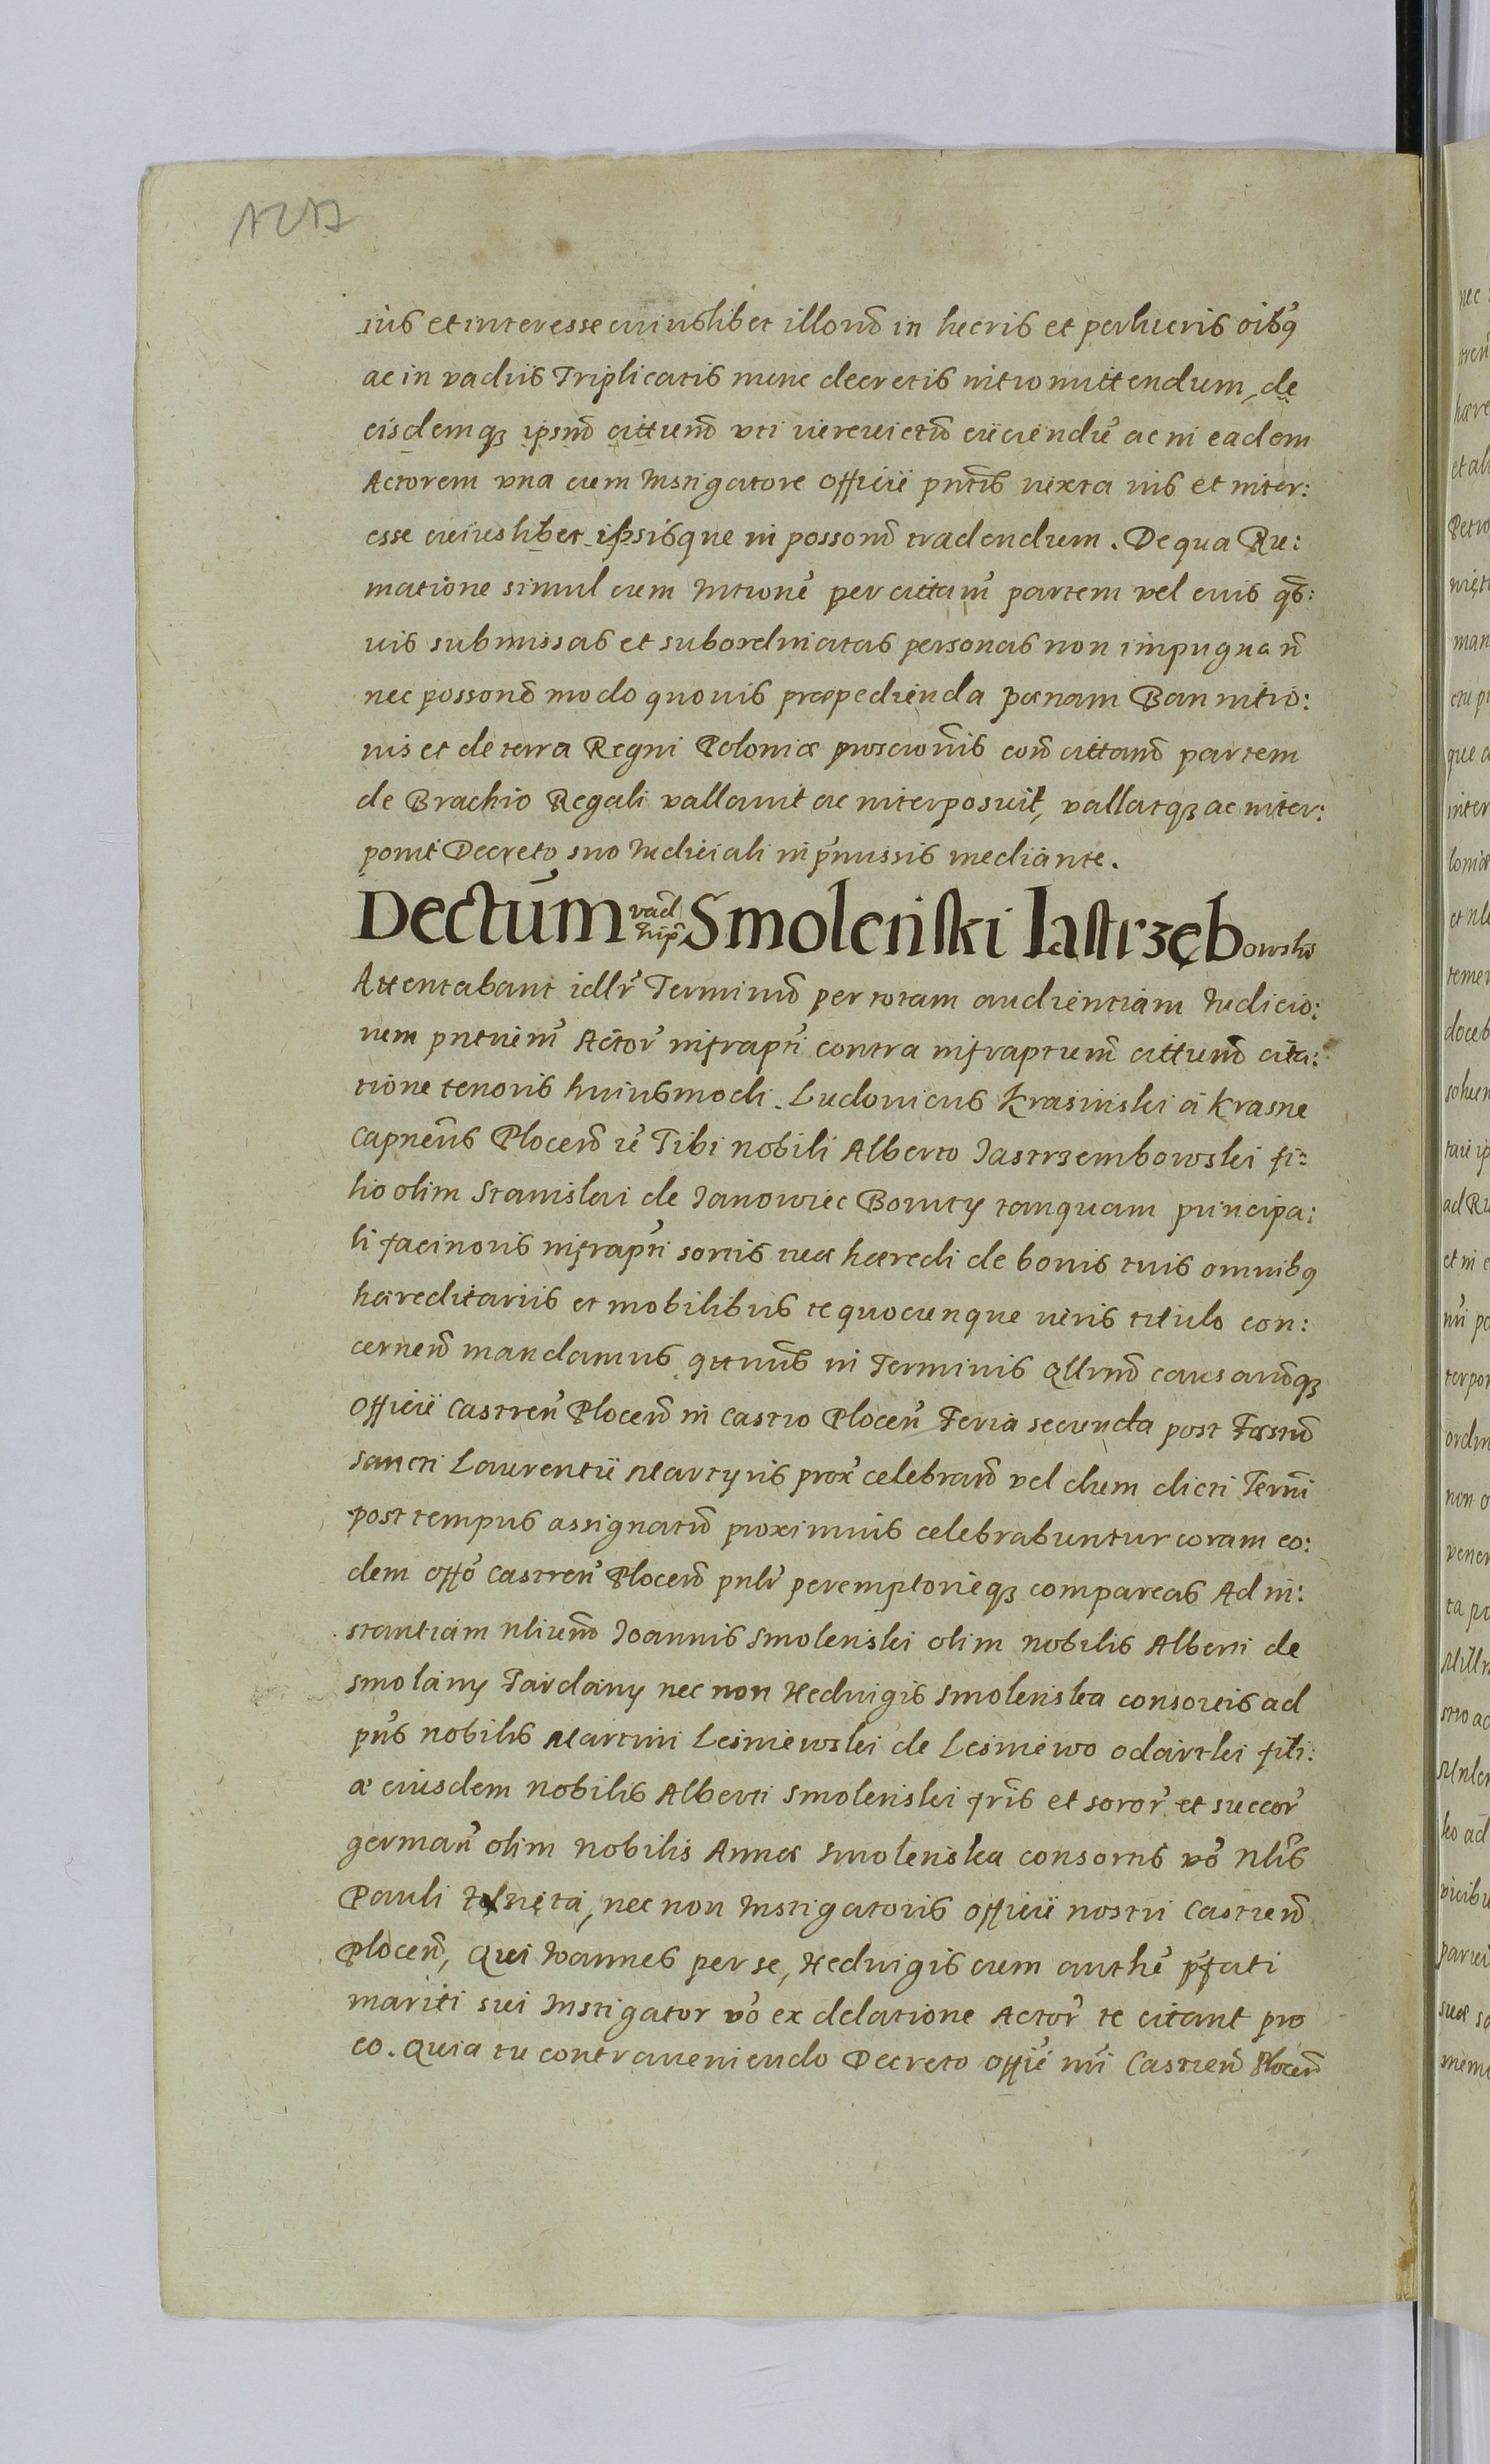 ius et interesse cuiuslibet illorum in lucris et perlucris oib9
ac in vadiis Triplicatis nunc decretis intromittendum, de
eisdemq3 ipsum cittum vti iurevictum eiiciendu ac in eadem
Actorem vna cum Instigatore Officii pntis iuxta ius et inter:
esse cuiuslibet ipsisque in posson tradendum. De qua Ru:
matione simul cum Intione per cittam partem vel eius qs:
vis submissas et subordinatas personas non impugnan
nec posson modo quovis praepedienda paenam Bannitio:
nis et de terra Regni Poloniae proscionis con cittam partem
de Brachio Regali vallavit ac interposuit, vallatq3 ac inter:
ponit Decreto suo Iudiciali in pmissis mediante.
Dectum vad trip Smoleński Iastrzębowski
Attentabant idlr Terminum per totam audientiam Iudicio:
rum pntium Actor infrapti contra infraptum cittum cita:
tione tenoris huiusmodi. Ludovicus Krasinski a Krasne
Capneus Plocen et Tibi nobili Alberto Jastrzembowski fi:
lio olim Stanislai de Janowiec Boruty tanquam principa:
li facinoris infrapti sortis tuae haeredi de bonis tuis omnib9
haereditariis et mobilibus te quocunque iuris titulo con:
cernen mandamus qttnus in Terminis qllrum causarumq3
Officii Castren Plocen in Castro Plocen Feria secunda post Festum
Sancti Laurentii Martyris prox celebran vel dum dicti Termi
post tempus assignatum proximius celebrabuntur coram eo:
dem Offo Castren Plocen pnlr peremptorieq3 compareas Ad in:
stantiam nlium Joannis Smolenski olim nobilis Alberti de
Smolany Zardany nec non Hedvigis Smolenska consortis ad
pns nobilis Martini Lesniewski de Lesniewo Odartki fili:
ae eiusdem nobilis Alberti Smolenski fris et soror et succor
german olim nobilis Annae Smolenska consortis vo nlis
Pauli, nec non Instigatoris Officii nostri Castren
Plocen, Qui Joannes per se, Hedvigis cum authe pfati
mariti sui Instigator vo ex delatione Actor te citant pro
eo. Quia tu contraveniendo Decreto Offii nri Castren Plocen